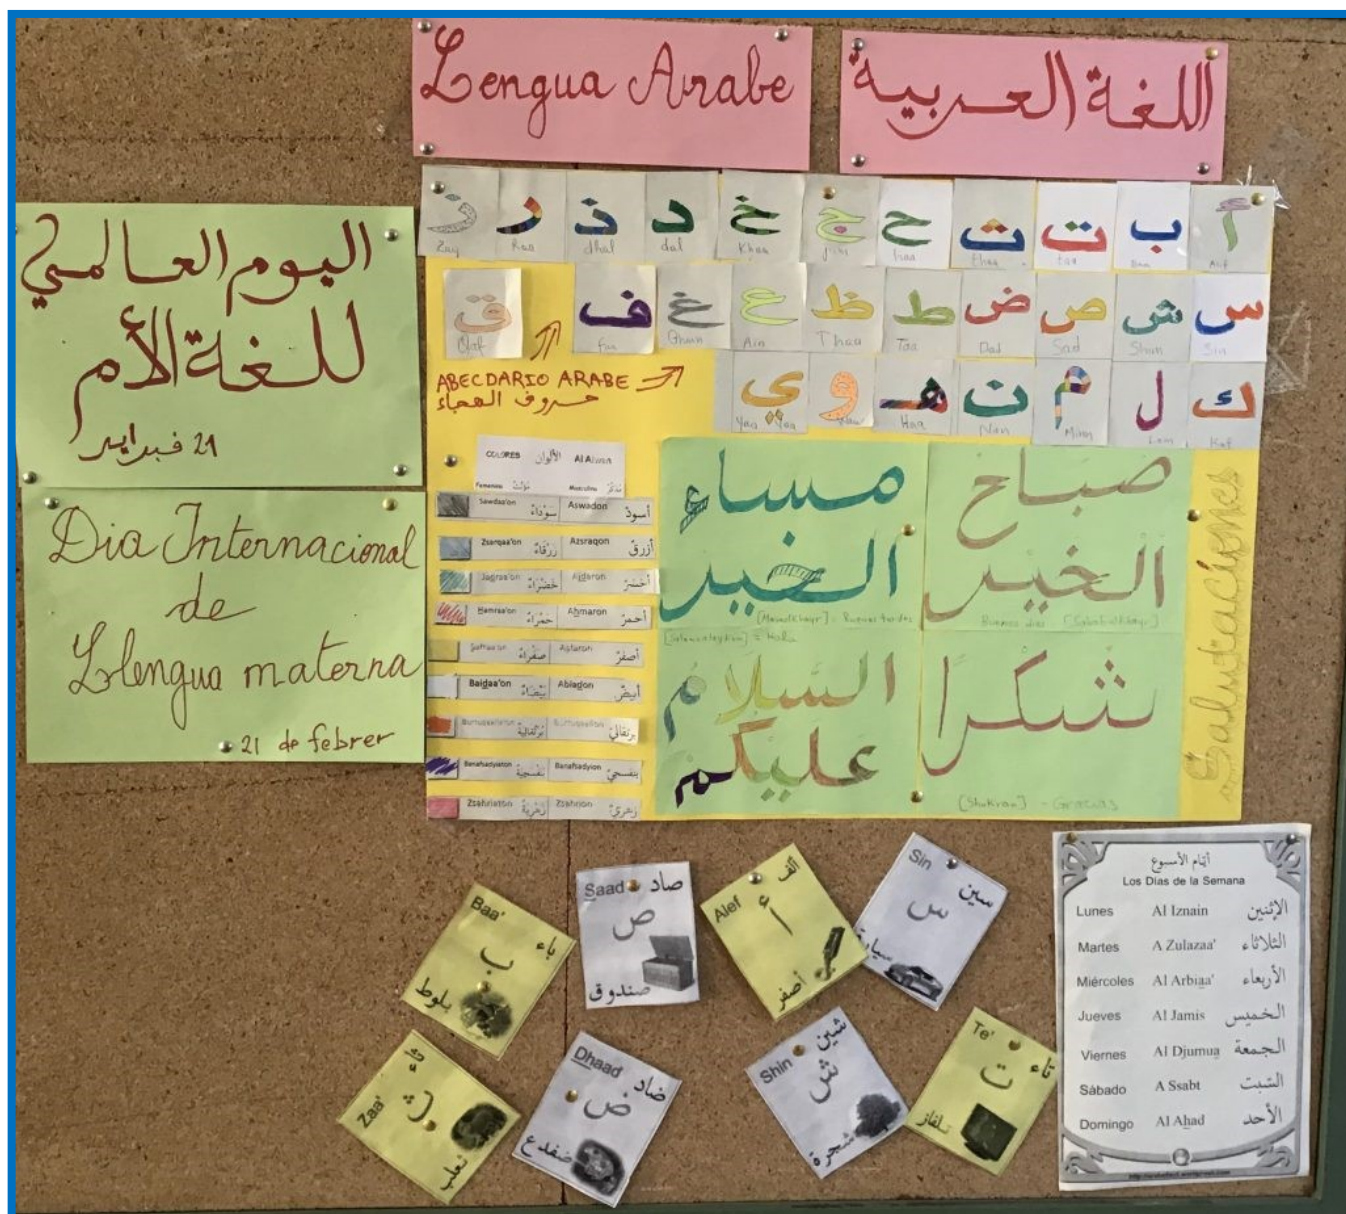 Lengua Arabe
اللغة العربية
اليوم العالمي
للغة الأم
21 فبراير
Dia Internacional
de
Llengua materna
21 de febrer
أ ب ت ث ج ح خ د ذ ر ز
Alif Baa taa thaa jim haa Khaa dal dhal Raa Zay
س ش ص ض ط ظ ع غ ف ق
Sin Shim Sad Dad Taa Thaa Ain Ghain Faa Qaf
ك ل م ن ه و ي
Kaf Lam Mim Nan Haa Waw Yaa Yaa
ABECDARIO ARABE
حروف الهجاء
COLORES الألوان Al Alwan
Femenino مُؤنَّث Masculino مُذكَّر
Sawdaa'on سَوْدَاءُ Aswadon أسودُ
Zsarqaa'on زَرْقَاءُ Azsraqon أزرقُ
Jadraa'on خَضْرَاءُ Ajdaron أخضرُ
Hamraa'on حَمْرَاءُ Ahmaron أحمرُ
Safraa'on صَفْرَاءُ Asfaron أصفرُ
Baidaa'on بَيْضَاءُ Abiadon أبيضُ
بُرْتُقاليةٌ برتقاليٌ
Banafsadyiaton بنفسجيةٌ Banafsadyion بنفسجيٌ
Zsahriaton زَهْرِيةٌ Zsahrion زهريٌ
مساء
الخير
[Masaalkhayr] - Buenas tardes
صباح
الخير
Buenos dias - [Sabahalkhayr]
[Salamualaykum] = Hola
السَّلَامُ
عَلَيْكُم
شُكرًا
[Shukran] - Gracias
Saludtaciones
Baa' باء
ب
بلوط
Saad صاد
ص
صندوق
Alef ألف
أ
أصفر
Sin سين
س
سيارة
Zaa' ثاء
ث
ثعلب
Dhaad ضاد
ض
ضفدع
Shin شين
ش
شجرة
Te' تاء
ت
تلفاز
أيام الأسبوع
Los Días de la Semana
Lunes Al Iznain الإثنين
Martes A Zulazaa' الثلاثاء
Miércoles Al Arbiaa' الأربعاء
Jueves Al Jamis الخميس
Viernes Al Djumua الجمعة
Sábado A Ssabt السّبت
Domingo Al Ahad الأحد